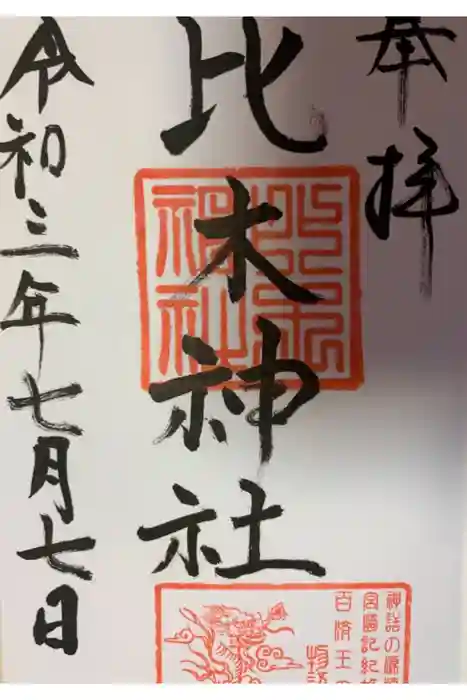 奉拝
比木神社
比木
神社
令和三年七月七日
神話の源流
宮崎記紀
百済王
物語